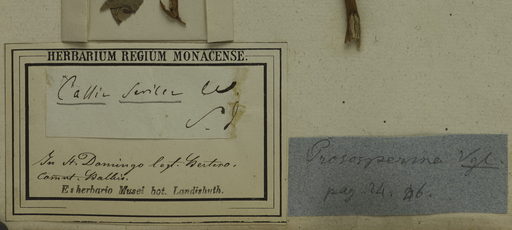 HERBARIUM REGIUM MONACENSE.
Cassia sericea W
S. D
In St. Domingo legt. Bertero.
Comm. Balbis.
Ex herbario Musei bot. Landishuth.
Prososperma Vgl.
pag. 24. 86.